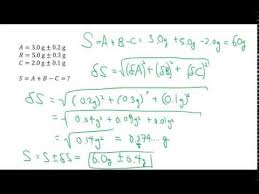 A = 3.0 g ± 0.2 g
B = 5.0 g ± 0.3 g
C = 2.0 g ± 0.1 g
S = A + B − C = ?
S = A + B − C = 3.0g + 5.0g − 2.0g = 6.0g
δS = √((δA)² + (δB)² + (δC)²)
δS = √((0.2g)² + (0.3g)² + (0.1g)²)
= √(0.04g² + 0.09g² + 0.01g²)
= √(0.14g²) = 0.374....g
S = S ± δS = 6.0g ± 0.4g